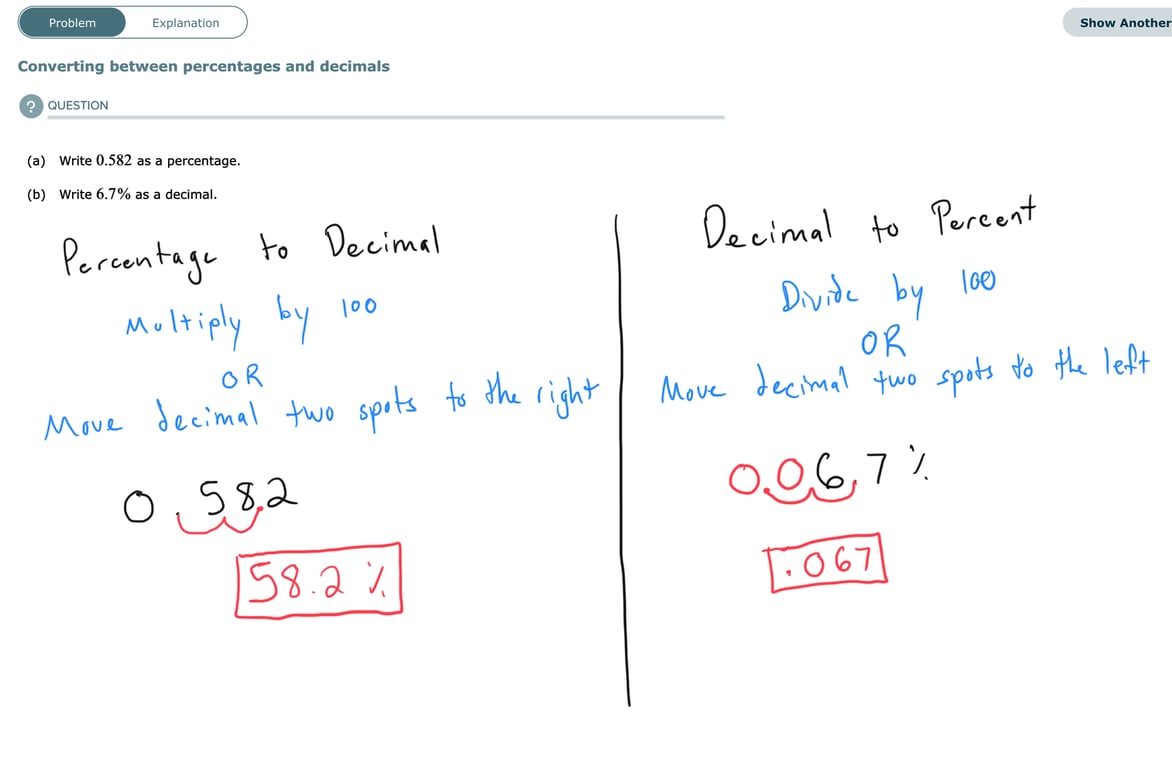 Problem
Explanation
Show Another
Converting between percentages and decimals
? QUESTION
(a) Write 0.582 as a percentage.
(b) Write 6.7% as a decimal.
Percentage to Decimal
Multiply by 100
OR
Move decimal two spots to the right
0.58.2
58.2 %
Decimal to Percent
Divide by 100
OR
Move decimal two spots to the left
0.06.7 %
.067